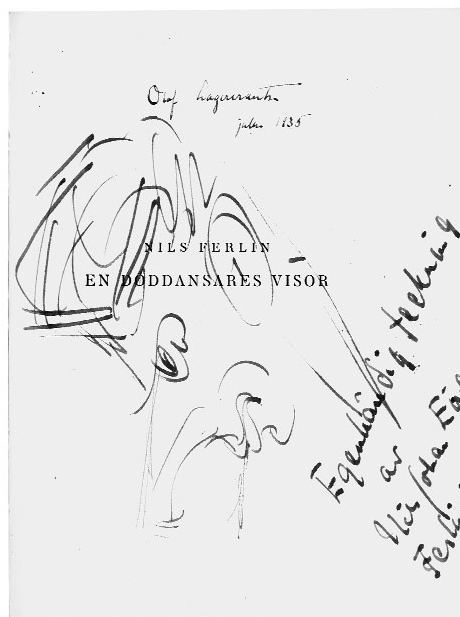 Olof Lagercrantz
julen 1935
NILS FERLIN
EN DÖDDANSARES VISOR
Egenhändig teckning
av
Nils Johan